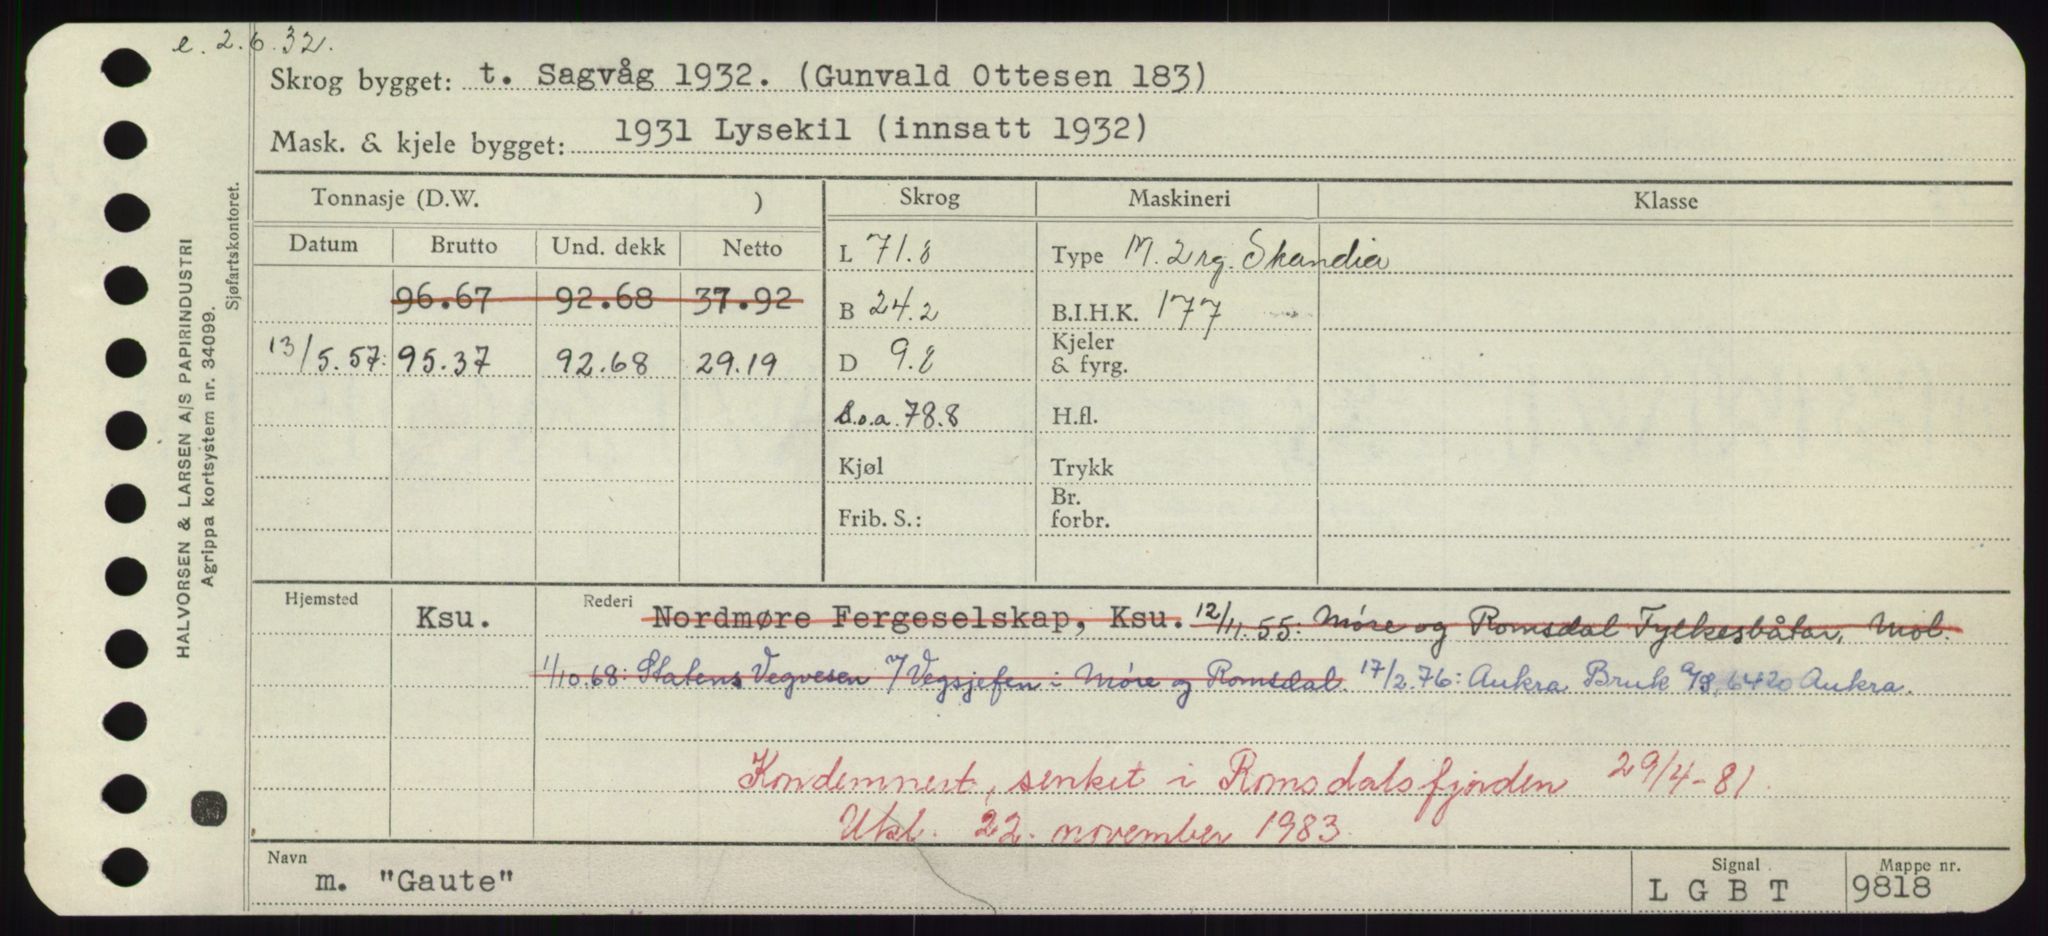 e. 2.6.32.
Skrog bygget: t. Sagvåg 1932. (Gunvald Ottesen 183)
Mask. & kjele bygget: 1931 Lysekil (innsatt 1932)
Tonnasje (D.W. ) Skrog Maskineri Klasse
Datum Brutto Und. dekk Netto L 71.8 Type M. 2 rg. Skandia
96.67 92.68 37.92 B 24.2 B.I.H.K. 177
13/5.57: 95.37 92.68 29.19 D 9.8 Kjeler & fyrg.
L.o.a. 78.8 H.fl.
Kjøl Trykk
Frib. S.: Br. forbr.
Hjemsted Ksu. Rederi Nordmøre Fergeselskap, Ksu. 12/11.55: Møre og Romsdal Fylkesbåtar, Mol.
1/10.68: Statens Vegvesen v/Vegsjefen i Møre og Romsdal. 17/2.76: Aukra Bruk A/S, 6420 Aukra.
Kondemnert, senket i Romsdalsfjorden 29/4-81.
Utkl. 22. november 1983.
Navn Signal Mappe nr.
m. "Gaute" L G B T 9818
HALVORSEN & LARSEN A/S PAPIRINDUSTRI
Agrippa kortsystem nr. 34099.
Sjøfartskontoret.